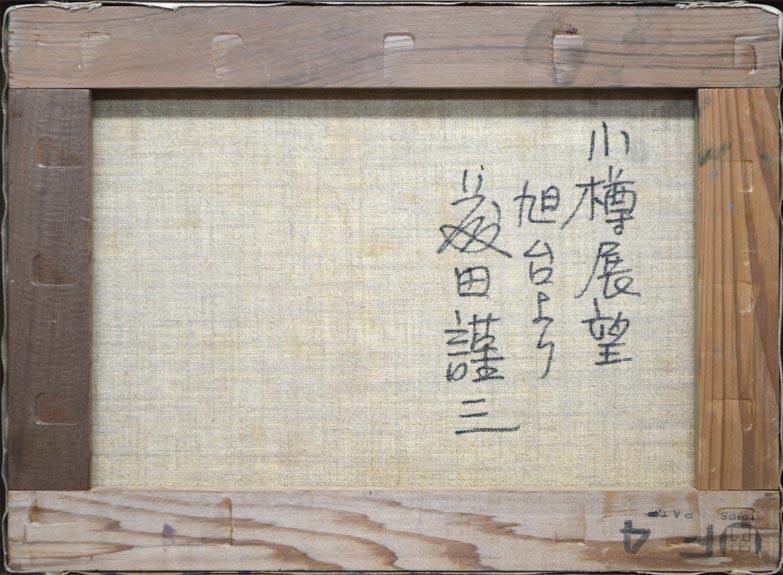 小樽展望
旭台より
田謹三
PAT
F4